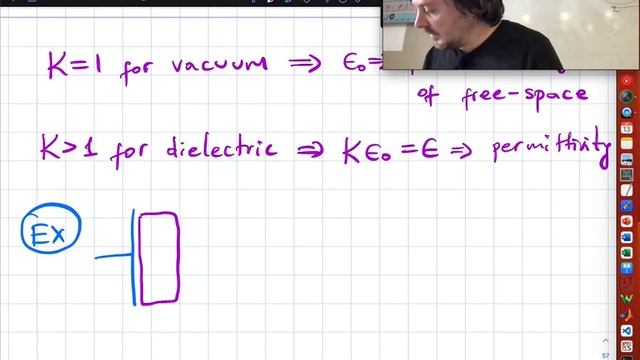 K=1 for vacuum ⇒ ϵ₀ ⇒
of free-space
K>1 for dielectric ⇒ Kϵ₀ = ϵ ⇒ permittivity
Ex
13
57